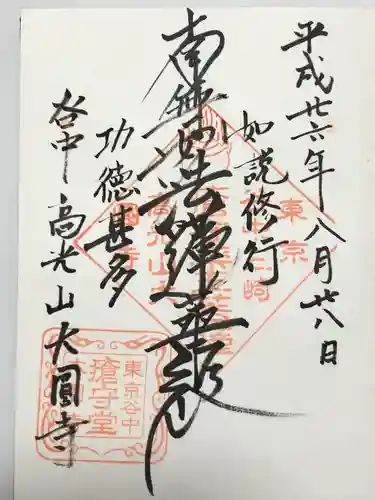 平成廿六年八月廿八日
如説修行
南無妙法蓮華経
功徳甚多
谷中 高光山大圓寺
東京
東京谷中
瘡守堂